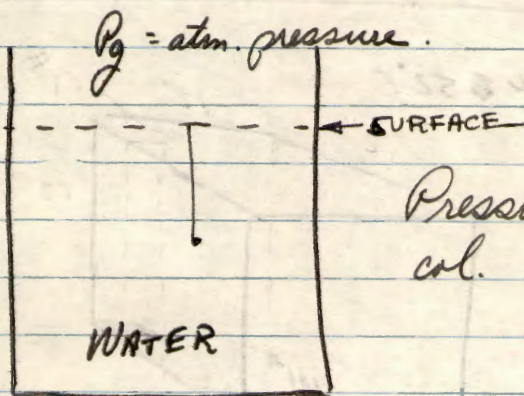 Pg = atm. pressure.
SURFACE
col.
WATER